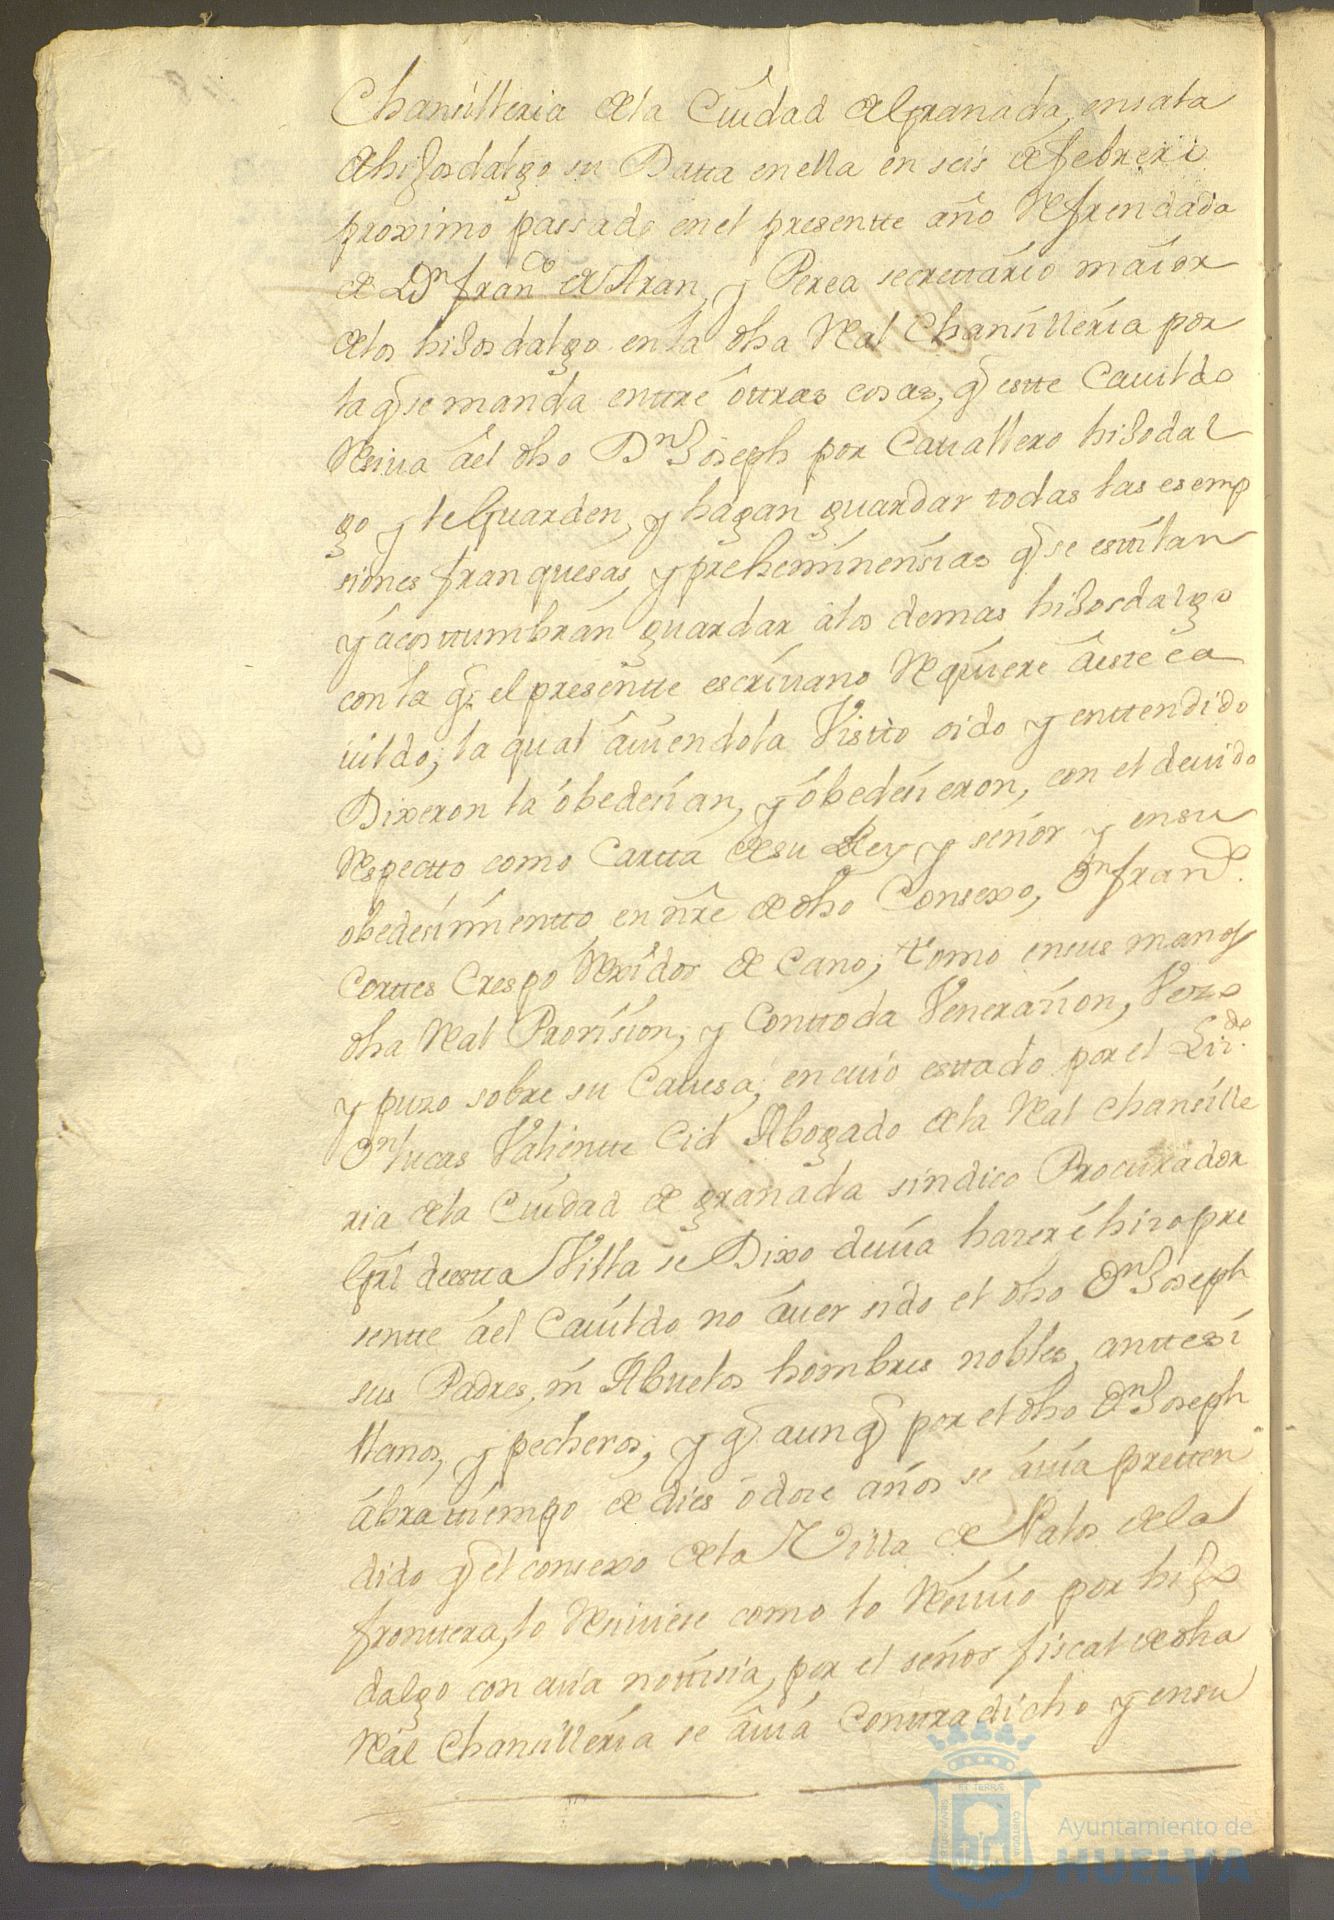 Chansilleria de la Ciudad de Granada, en sala
de hijosdalgo su Datta en ella en seis de febrero
proximo passado en el presentte año Refrendada
de Dn franco de Aran, y Perea secrettario maior
de los hijosdalgo en la dha Real Chansillería por
la q se manda enttre ottras cosas, q estte Cauildo
Resiua áel dho Dn Joseph por Cauallero hijodal
go y le Guarden, y hagan guardar todas las esemp
siones franquesas, y preheminensias q se estilan
y acosttumbran guardar a los demas hijosdalgo
con la q el presentte escriuano Requiere á este ca
uildo; la qual auiendola Vistto oido y enttendido
Dixeron la óbedesian, y óbedesieron, con el deuido
Respectto como Cartta de su Rey y señor y en su
obedesimientto, en nre de dho Consexo, Dn franco
Corttes Crespo Rexidor de Cano, tomo en sus manos
dha Real Provision, y Con ttoda Venerasion, Vezo
y puzo sobre su Cauesa, en cuio esttado por el Lizdo
Dn lucas Valientte Cid Abogado de la Real Chansille
ria de la Ciudad de granada sindico Procurador
Gral deestta Villa se Dixo deuia hazer é hizo pre
sentte áel Cauildo no áuer sido el dho Dn Joseph
sus Padres, ni Abuelos hombres nobles, anttes si
llanos, y pecheros, y q aunq por el dho Dn Joseph
ábra ttiempo de dies ó dose años se áuia pretten
dido q el consexo de la Villa de Palos de la
fronttera, lo Resiuiese como lo Resiuio por hijo
dalgo con cuia nottisia, por el señor fiscal de dha
Real Chansillería se áuia Conttradicho y en su
Ayuntamiento de
HUELVA